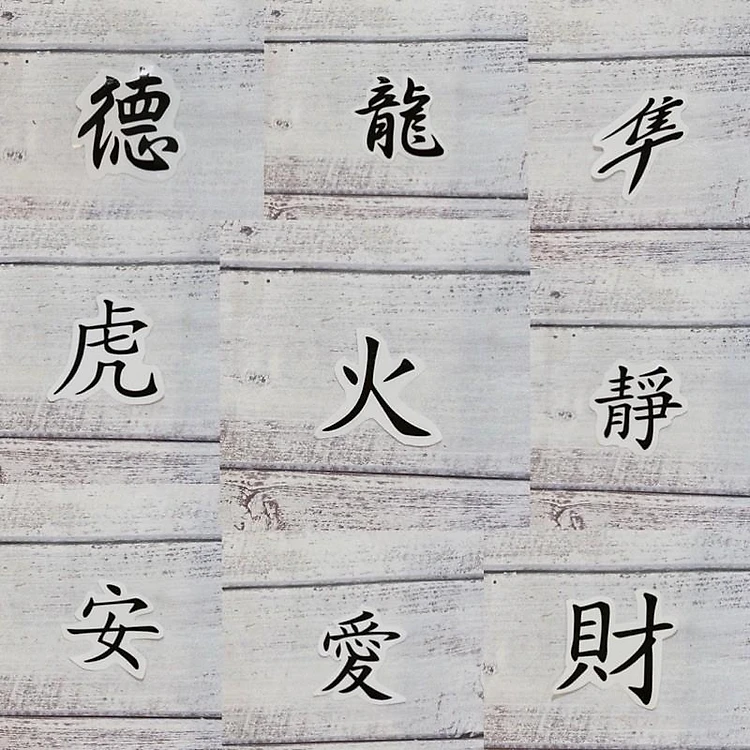 德
龍
隼
虎
火
靜
安
愛
財